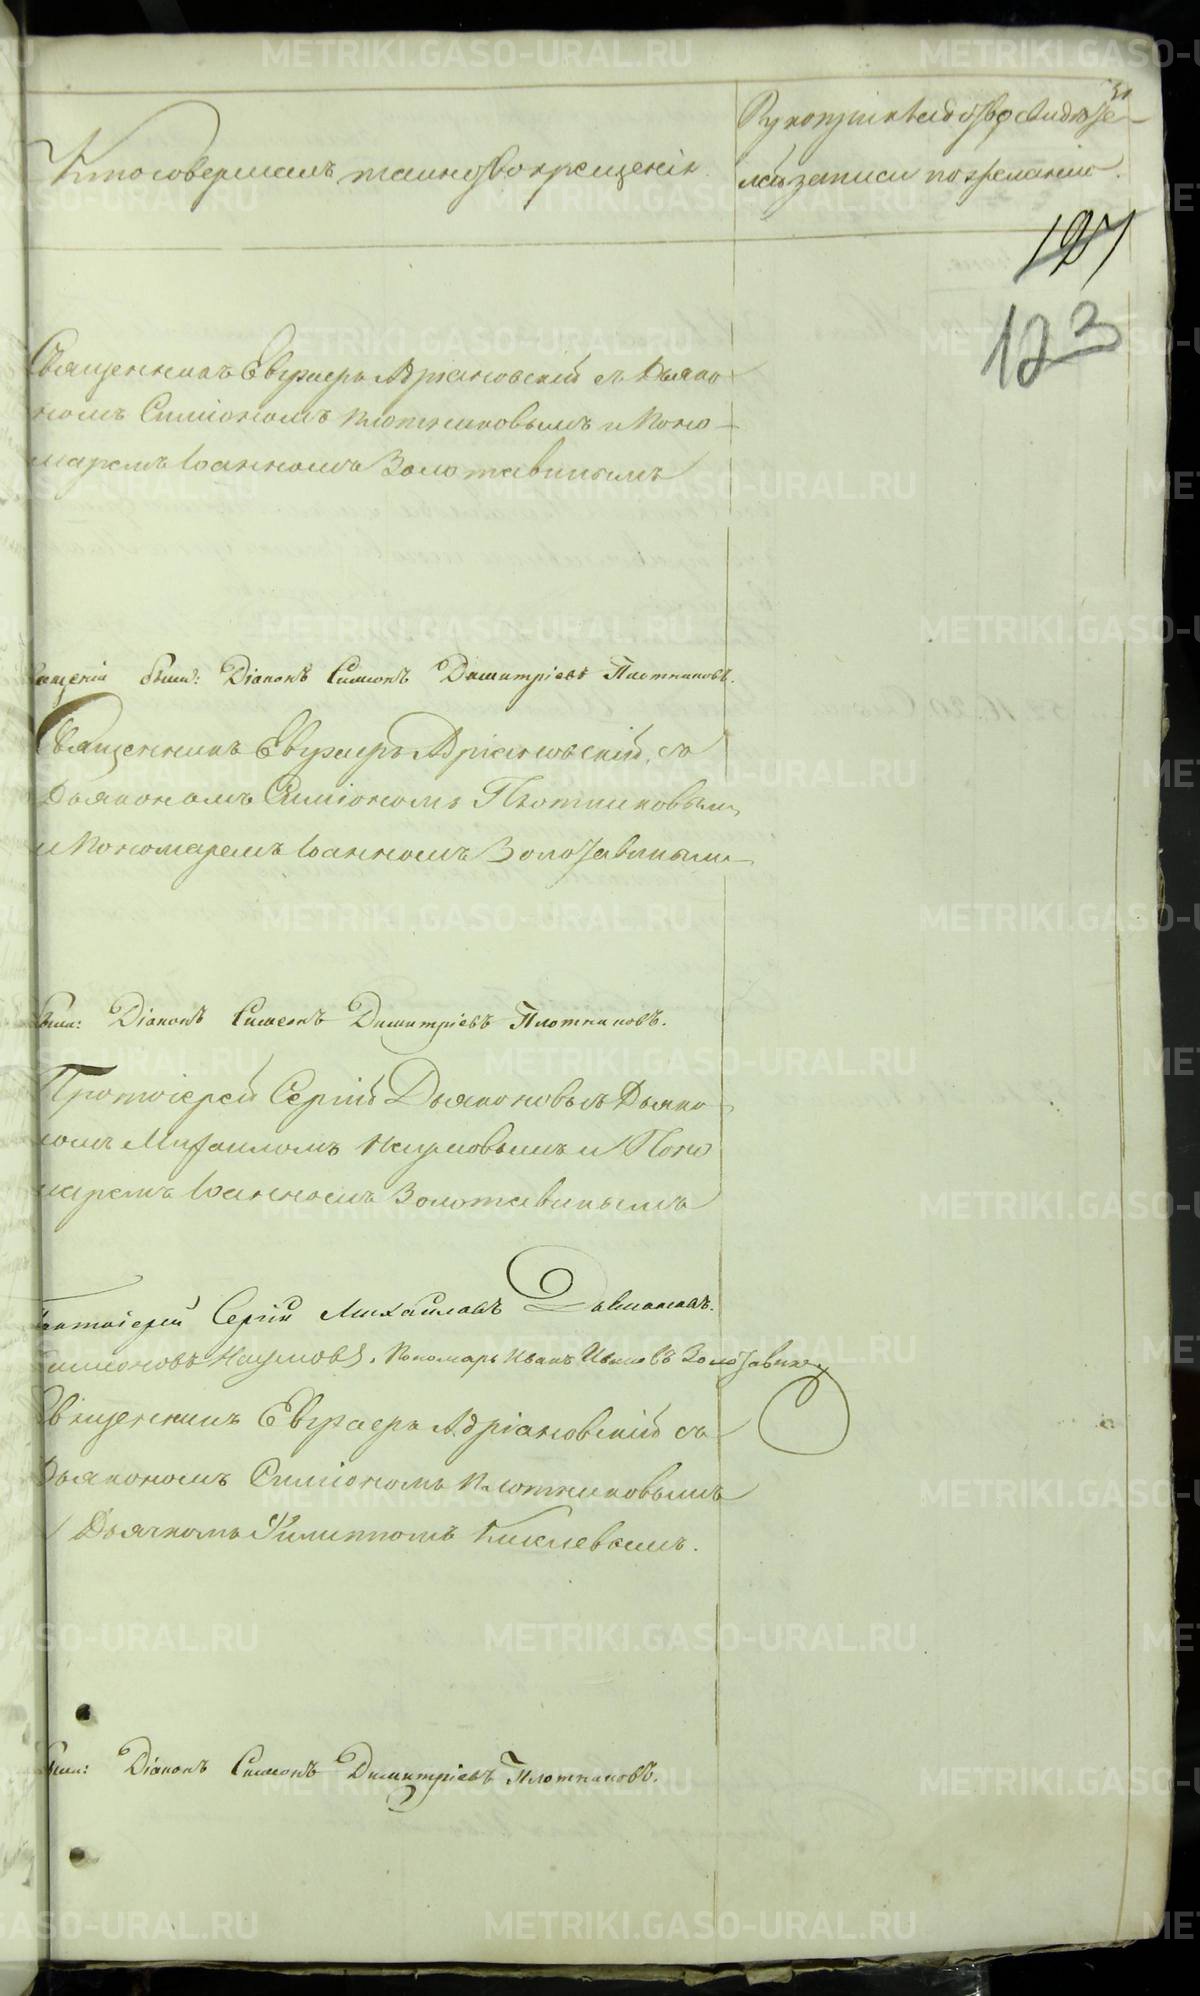 Кто совершалъ таинство крещенія
Рукоприкладство свидѣте-
лей записи по желанію.
31
127
123
Священникъ Евграфъ Адріановскій съ Дьяко
номъ Симіономъ Плотниковымъ и Поно-
маремъ Іоанномъ Золотавинымъ
были: Діаконъ Симеонъ Димитріевъ Плотниковъ.
Священникъ Евграфъ Адріановскій, съ
Дьякономъ Симіономъ Плотниковым
и Пономаремъ Іоанномъ Золотавиным
были: Діаконъ Симеонъ Димитріевъ Плотниковъ.
Протоіерей Сергій Дьяконовъ съ Дьяко
номъ Михаиломъ Наумовымъ и Поно
маремъ Іоанномъ Золотавинымъ
Протоіерей Сергій Михайловъ
Симеоновъ Наумовъ, Пономарь Иванъ Ивановъ Золотавинъ
Священникъ Евграфъ Адріановскій съ
Дьякономъ Симіономъ Плотниковымъ
Дьячкомъ Филиппомъ
были: Діаконъ Симеонъ Димитріевъ Плотниковъ.
METRIKI.GASO-URAL.RU